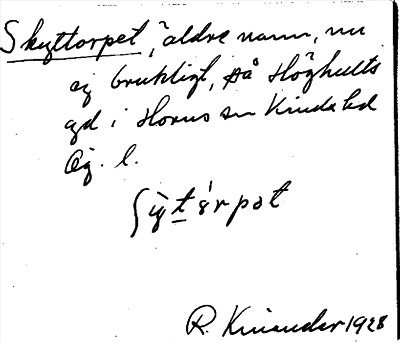 Skyttorpet, äldre namn, nu
ej brukligt, på Höghults
gd i Horns sn Kinda hd
Ög. l.
ʃỳt́ɵrpət
R. Kinander 1928